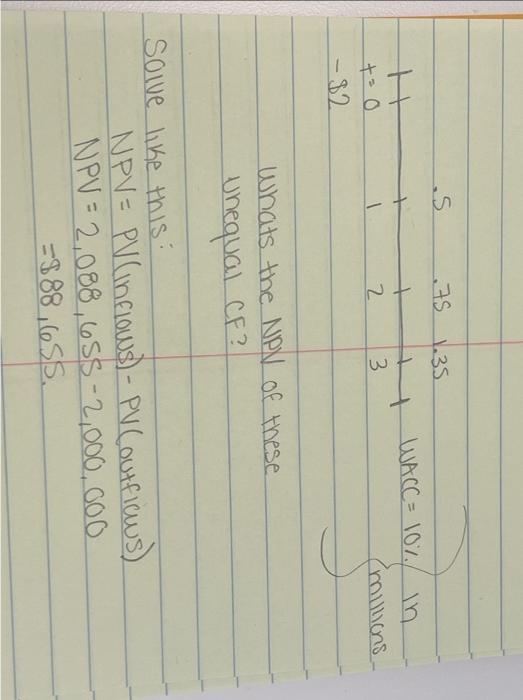 .5 .75 1.35
WACC = 10% in millions
t=0 1 2 3
-$2
Whats the NPV of these
unequal CF?
Solve like this:
NPV = PV(inflows) - PV(outflows)
NPV = 2,088,655 - 2,000,000
=$88,655.